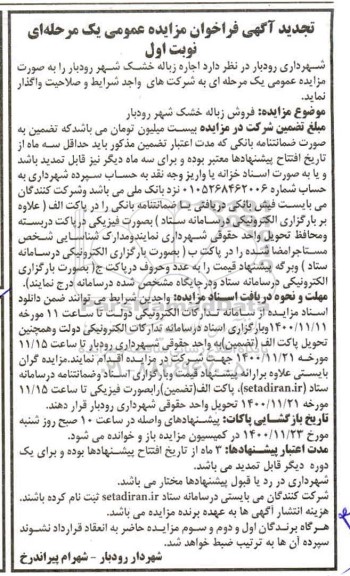 تجدید آگهی فراخوان مزایده عمومی یک مرحله‌ای
نوبت اول
شهرداری رودبار در نظر دارد اجاره زباله خشک شهر رودبار را به صورت
مزایده عمومی یک مرحله ای به شرکت های واجد شرایط و صلاحیت واگذار
نماید.
موضوع مزایده: فروش زباله خشک شهر رودبار
مبلغ تضمین شرکت در مزایده بیست میلیون تومان می باشدکه تضمین به
صورت ضمانتنامه بانکی که مدت اعتبار تضمین مذکور باید حداقل سه ماه از
تاریخ افتتاح پیشنهادها معتبر بوده و برای سه ماه دیگر نیز قابل تمدید باشد
و یا به صورت اسناد خزانه یا واریز وجه نقد به حساب سپرده شهرداری به
حساب شماره ۰۱۰۵۲۶۸۴۶۲۰۰۶ نزد بانک ملی می باشد وشرکت کنندگان
می بایست فیش بانکی دریافتی یا ضمانتنامه بانکی را در پاکت الف ( علاوه
بر بارگزاری الکترونیکی درسامانه ستاد ) بصورت فیزیکی درپاکت دربسته
ومحافظ تحویل واحد حقوقی شهرداری نمایندومدارک شناسایی شخص
مستاجرامضا شده را در پاکت ب ( بصورت بارگزاری الکترونیکی درسامانه
ستاد ) وبرگه پیشنهاد قیمت را به عدد وحروف درپاکت ج( بصورت بارگزاری
الکترونیکی درسامانه ستاد ودرجایگاه مشخص شده درسامانه درج نمایند).
مهلت و نحوه دریافت اسناد مزایده: واجدین شرایط می توانند ضمن دانلود
اسناد مزایده از سامانه تدارکات الکترونیکی دولت تا ساعت ۱۱ مورخه
۱۴۰۰/۱۱/۱۱ وبارگزاری اسناد درسامانه تدارکات الکترونیکی دولت وهمچنین
تحویل پاکت الف (تضمین)به واحد حقوقی شهرداری رودبار تا ساعت ۱۱/۱۵
مورخه ۱۴۰۰/۱۱/۲۱ جهت شرکت در مزایده اقدام نمایند.مزایده گران
بایستی علاوه برارائه پیشنهاد قیمت وبارگزاری اسناد وضمانتنامه درسامانه
ستاد (setadiran.ir)، پاکت الف(تضمین)رابصورت فیزیکی تا ساعت ۱۱/۱۵
مورخه ۱۴۰۰/۱۱/۲۱ تحویل واحد حقوقی شهرداری رودبار قرار دهند.
تاریخ بازگشایی پاکات: پیشنهادهای واصله در ساعت ۱۰ صبح روز شنبه
مورخ ۱۴۰۰/۱۱/۲۳ در کمیسیون مزایده باز و خوانده می شود.
مدت اعتبار پیشنهادها: ۳ ماه از تاریخ افتتاح پیشنهادها بوده و برای یک
دوره دیگر قابل تمدید می باشد.
شهرداری در رد یا قبول پیشنهادها مختار می باشد.
شرکت کنندگان می بایستی درسامانه ستاد setadiran.ir ثبت نام کرده باشند.
هزینه انتشار آگهی ها به عهده برنده مزایده می باشد.
هرگاه برندگان اول و دوم و سوم مزایده حاضر به انعقاد قرارداد نشوند
سپرده آن ها به ترتیب ضبط خواهد شد.
شهردار رودبار - شهرام پیراندرخ